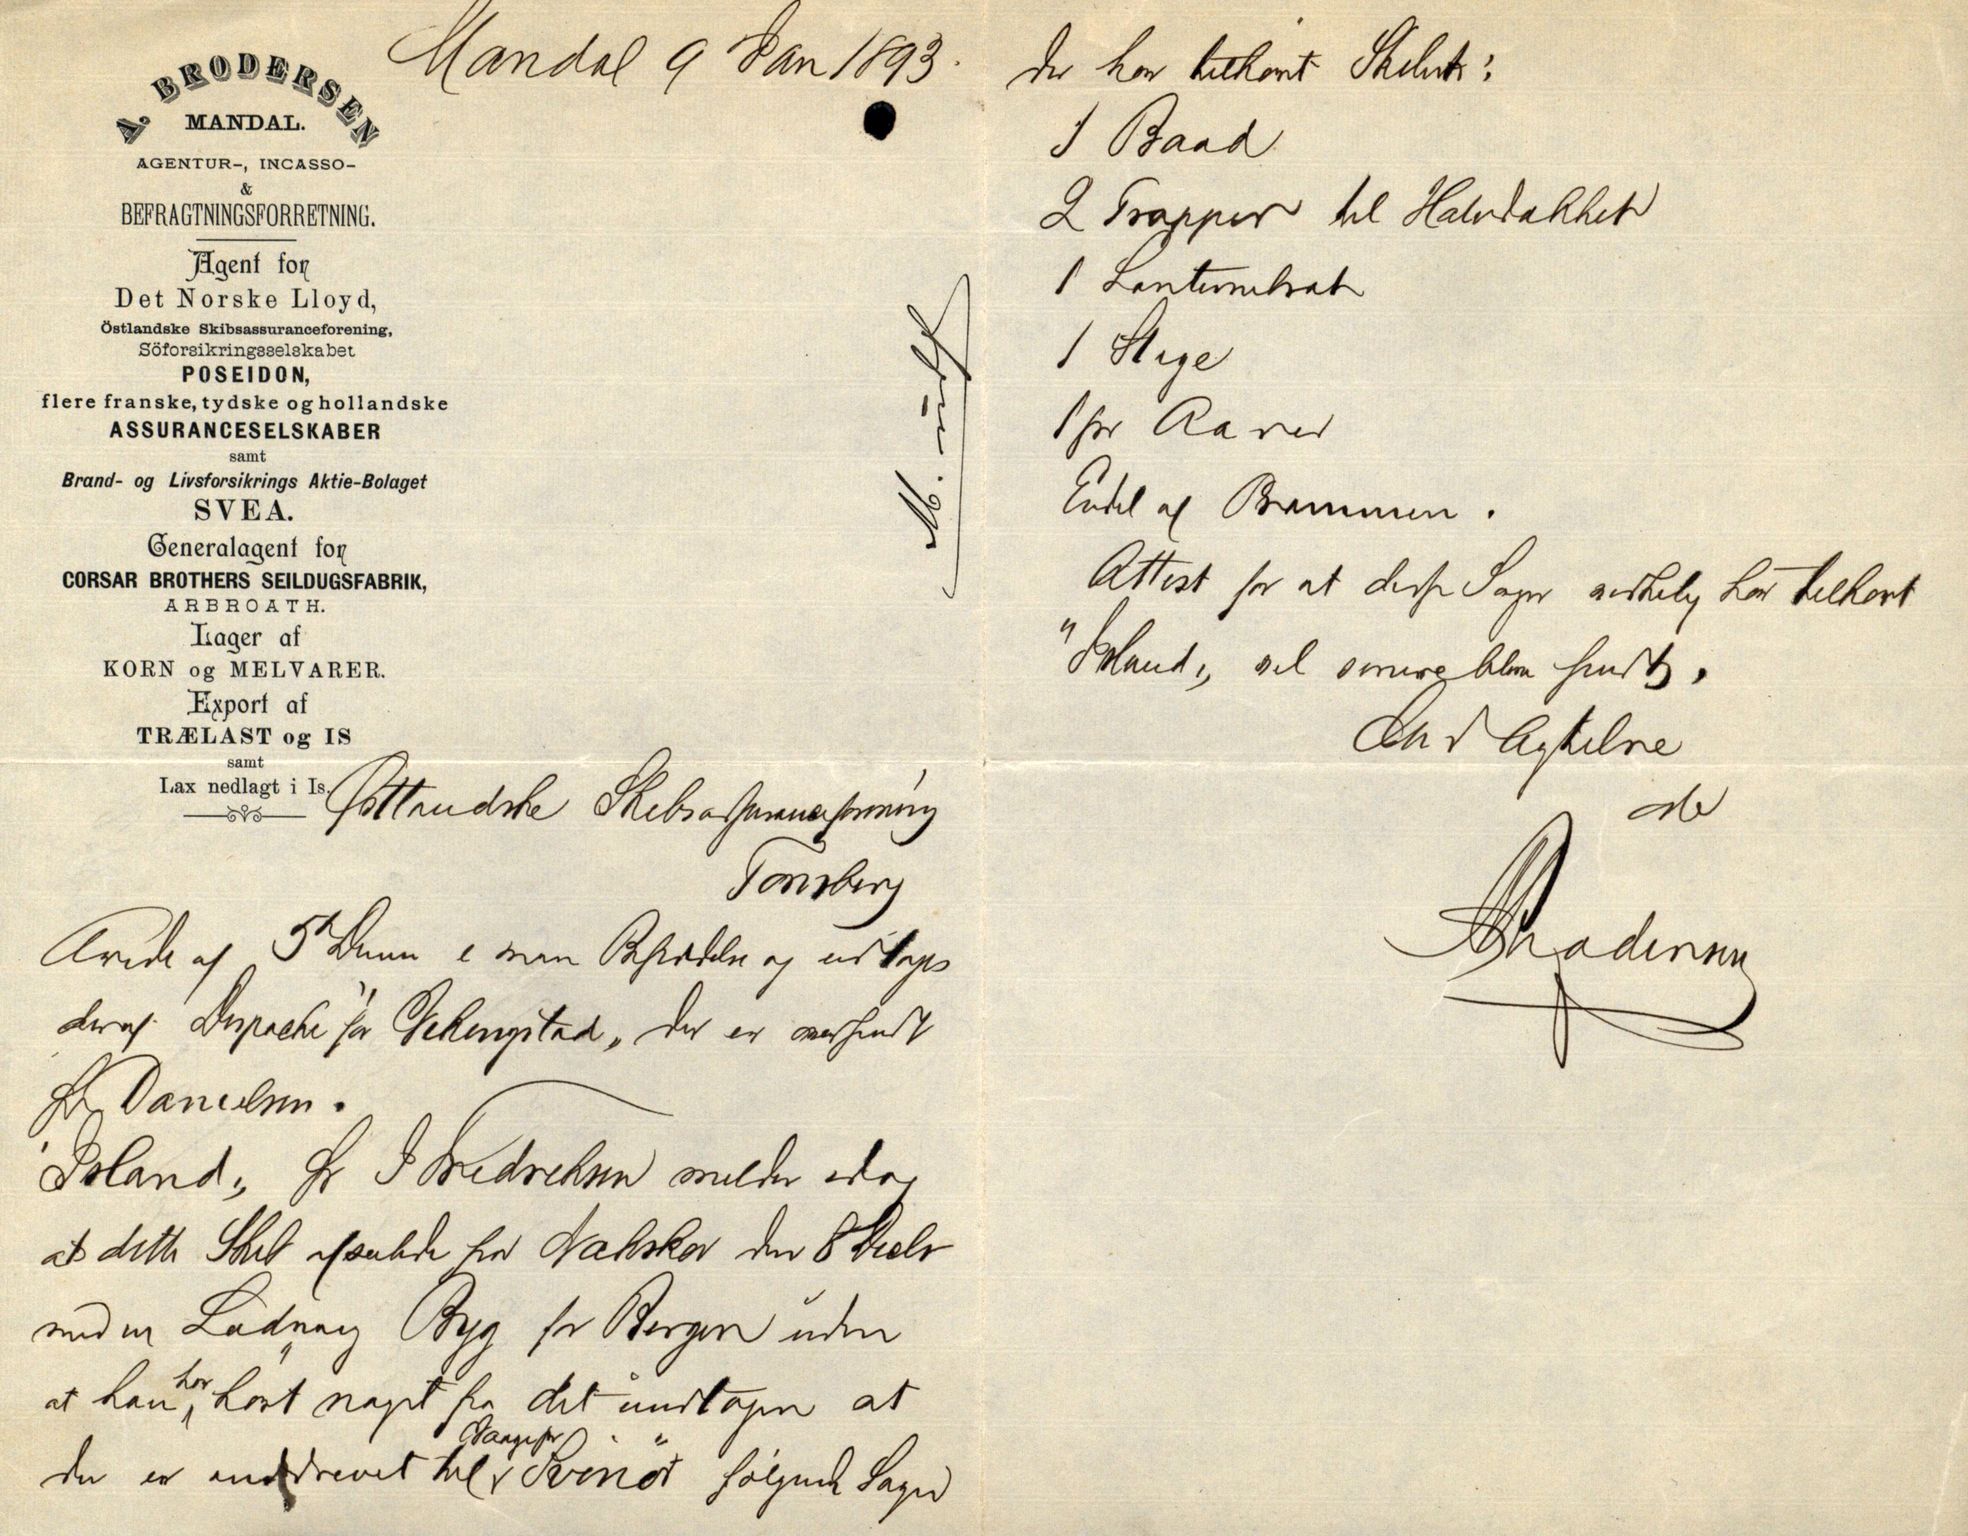 A. BRODERSEN
MANDAL.
AGENTUR-, INCASSO-
&
BEFRAGTNINGSFORRETNING.
Agent for
Det Norske Lloyd,
Östlandske Skibsassuranceforening,
Söforsikringsselskabet
POSEIDON,
flere franske, tydske og hollandske
ASSURANCESELSKABER
samt
Brand- og Livsforsikrings Aktie-Bolaget
SVEA.
Generalagent for
CORSAR BROTHERS SEILDUGSFABRIK,
ARBROATH.
Lager af
KORN og MELVARER.
Export af
TRÆLAST og IS
samt
Lax nedlagt i Is.
Mandal 9 Jan 1893.
Østlandske Skibsassuranceforening
Tønsberg
af 5te Dennes e man Besiddelse og
deraf Dispache for Gekengstad„ der er oversendt
Hr Danielsen.
"Island„ Hr J Fredriksen melder idag
at dette Skib afseilede fra Nakskov den 8 Decbr
med en Ladning Byg for Bergen uden
at han har hørt noget fra det undtagen at
der er inddrevet til Svinör følgende Sager
der har tilhørt Skibet:
1 Baad
2 Trapper til Halvdækket
1 Lanternebræt
1 Stige
1 pr Aarer
Endel af Brammen.
Attest for at disse Sager virkelig har tilhørt
"Island„ vil senere blive sendt.
Med Agtelse
A Brodersen